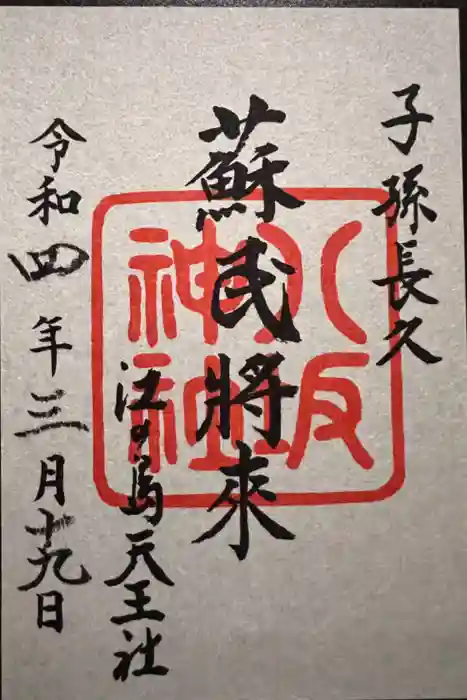 子孫長久
蘇民將來
江の島天王社
令和四年三月十九日
八坂
神社